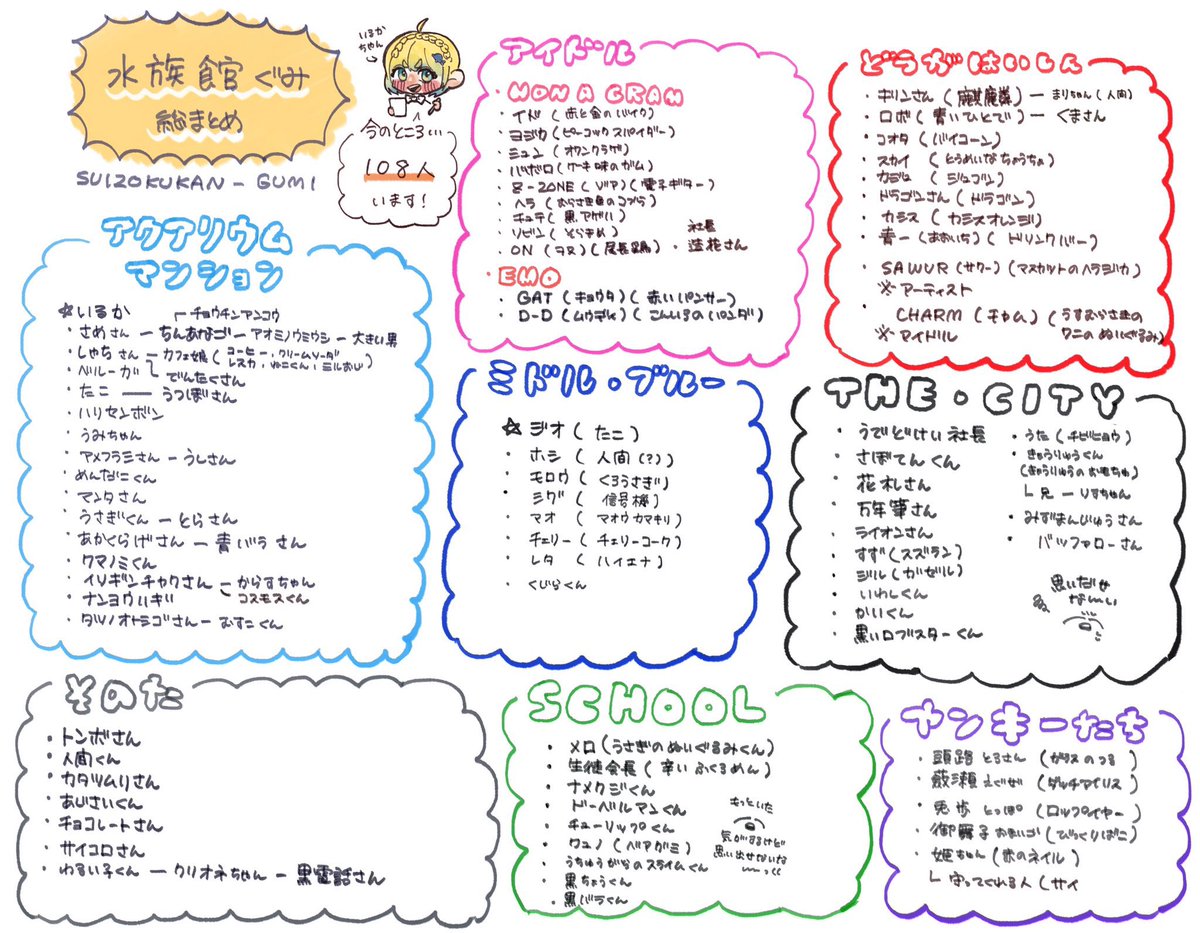 水族館ぐみ
総まとめ
SUIZOKUKAN-GUMI
いるかちゃん
今のところ…
108人
います!
アクアリウム
マンション
☆いるか
チョウチンアンコウ
・さめさん ー ちんあなご ー アオミノウミウシ ー 大きい男
・しゃちさん ー カフェ娘(コーヒー・クリームソーダ
レスカ・ゆこくん・ミルおじ)
・ベルーガ でんたくさん
・たこ ー うつぼさん
・ハリセンボン
・うみちゃん
・アメフラシさん ー うしさん
・めんだこくん
・マンタさん
・うさぎくん ー とらさん
・あかくらげさん ー 青バラさん
・クマノミくん
・イソギンチャクさん ー からすちゃん
・ナンヨウハギ コスモスくん
・タツノオトシゴさん ー むすこくん
アイドル
・NON A GRAM
・イド (赤と金のバイク)
・ヨジカ (ピーコックスパイダー)
・ミュン (オワンクラゲ)
・バボロ (ケーキ味のガム)
・8-ZONE (ゾア) (電子ギター)
・ヘラ (むらさき色のコブラ)
・チュテ (黒アゲハ)
・リビン (とらきめ)
・ON (ヲヌ) (尾長鶏)
社長
・蓮花さん
・EMO
・GAT (キョウタ) (赤いパンサー)
・D-D (ムウディ) (こんいろのパンダ)
どうがはいしん
・キリンさん (麒麟) ー まりちゃん (人間)
・ロボ (青いひとで) ー くまさん
・コオタ (バイコーン)
・スカイ (とうめいなちょうちょ)
・カジュ (ジュゴン)
・ドラゴンさん (ドラゴン)
・カシス (カシスオレンジ)
・青一 (あおいち) (ドリンクバー)
・SAWUR (サワー) (マスカットのヘラジカ)
※アーティスト
・CHARM (チャム) (うすむらさきの
ワニのぬいぐるみ)
※アイドル
ミドル・ブルー
☆ジオ (たこ)
・ホシ (人間(?))
・モロウ (くろうさぎ)
・シグ (信号機)
・マオ (マオウカマキリ)
・チェリー (チェリーコーク)
・レタ (ハイエナ)
・くじらくん
THE・CITY
・うでどけい社長
・さぼてんくん
・花札さん
・万年筆さん
・ライオンさん
・すず (スズラン)
・ジル (ガゼル)
・いわしくん
・かいくん
・黒いロブスターくん
・うた (チビヒョウ)
・きょうりゅうくん
(きょうりゅうのおもちゃ)
└兄 ー りすちゃん
・みずまんじゅうさん
・バッファローさん
思いだせ
なーい
そのた
・トンボさん
・人間くん
・カタツムリさん
・あじさいくん
・チョコレートさん
・サイコロさん
・わるい子くん ー クリオネちゃん ー 黒電話さん
SCHOOL
・メロ (うさぎのぬいぐるみくん)
・生徒会長 (辛いふくろめん)
・ナメクジくん
・ドーベルマンくん
・チューリップくん
・ワュノ (ベアグミ)
・うちゅうからのスライムくん
・黒ちょうくん
・黒バラくん
もっといた
気がするけど
思い出せないな
ーっ
ヤンキーたち
・頭路 とるさん (ガラスのつる)
・薮瀬 えぐぜ (ダッチアイリス)
・兎歩 とっぽ (ロップイヤー)
・御舞子 おまいご (びっくりばこ)
・姫ちゃん (赤のネイル)
└ 守ってくれる人 (サイ